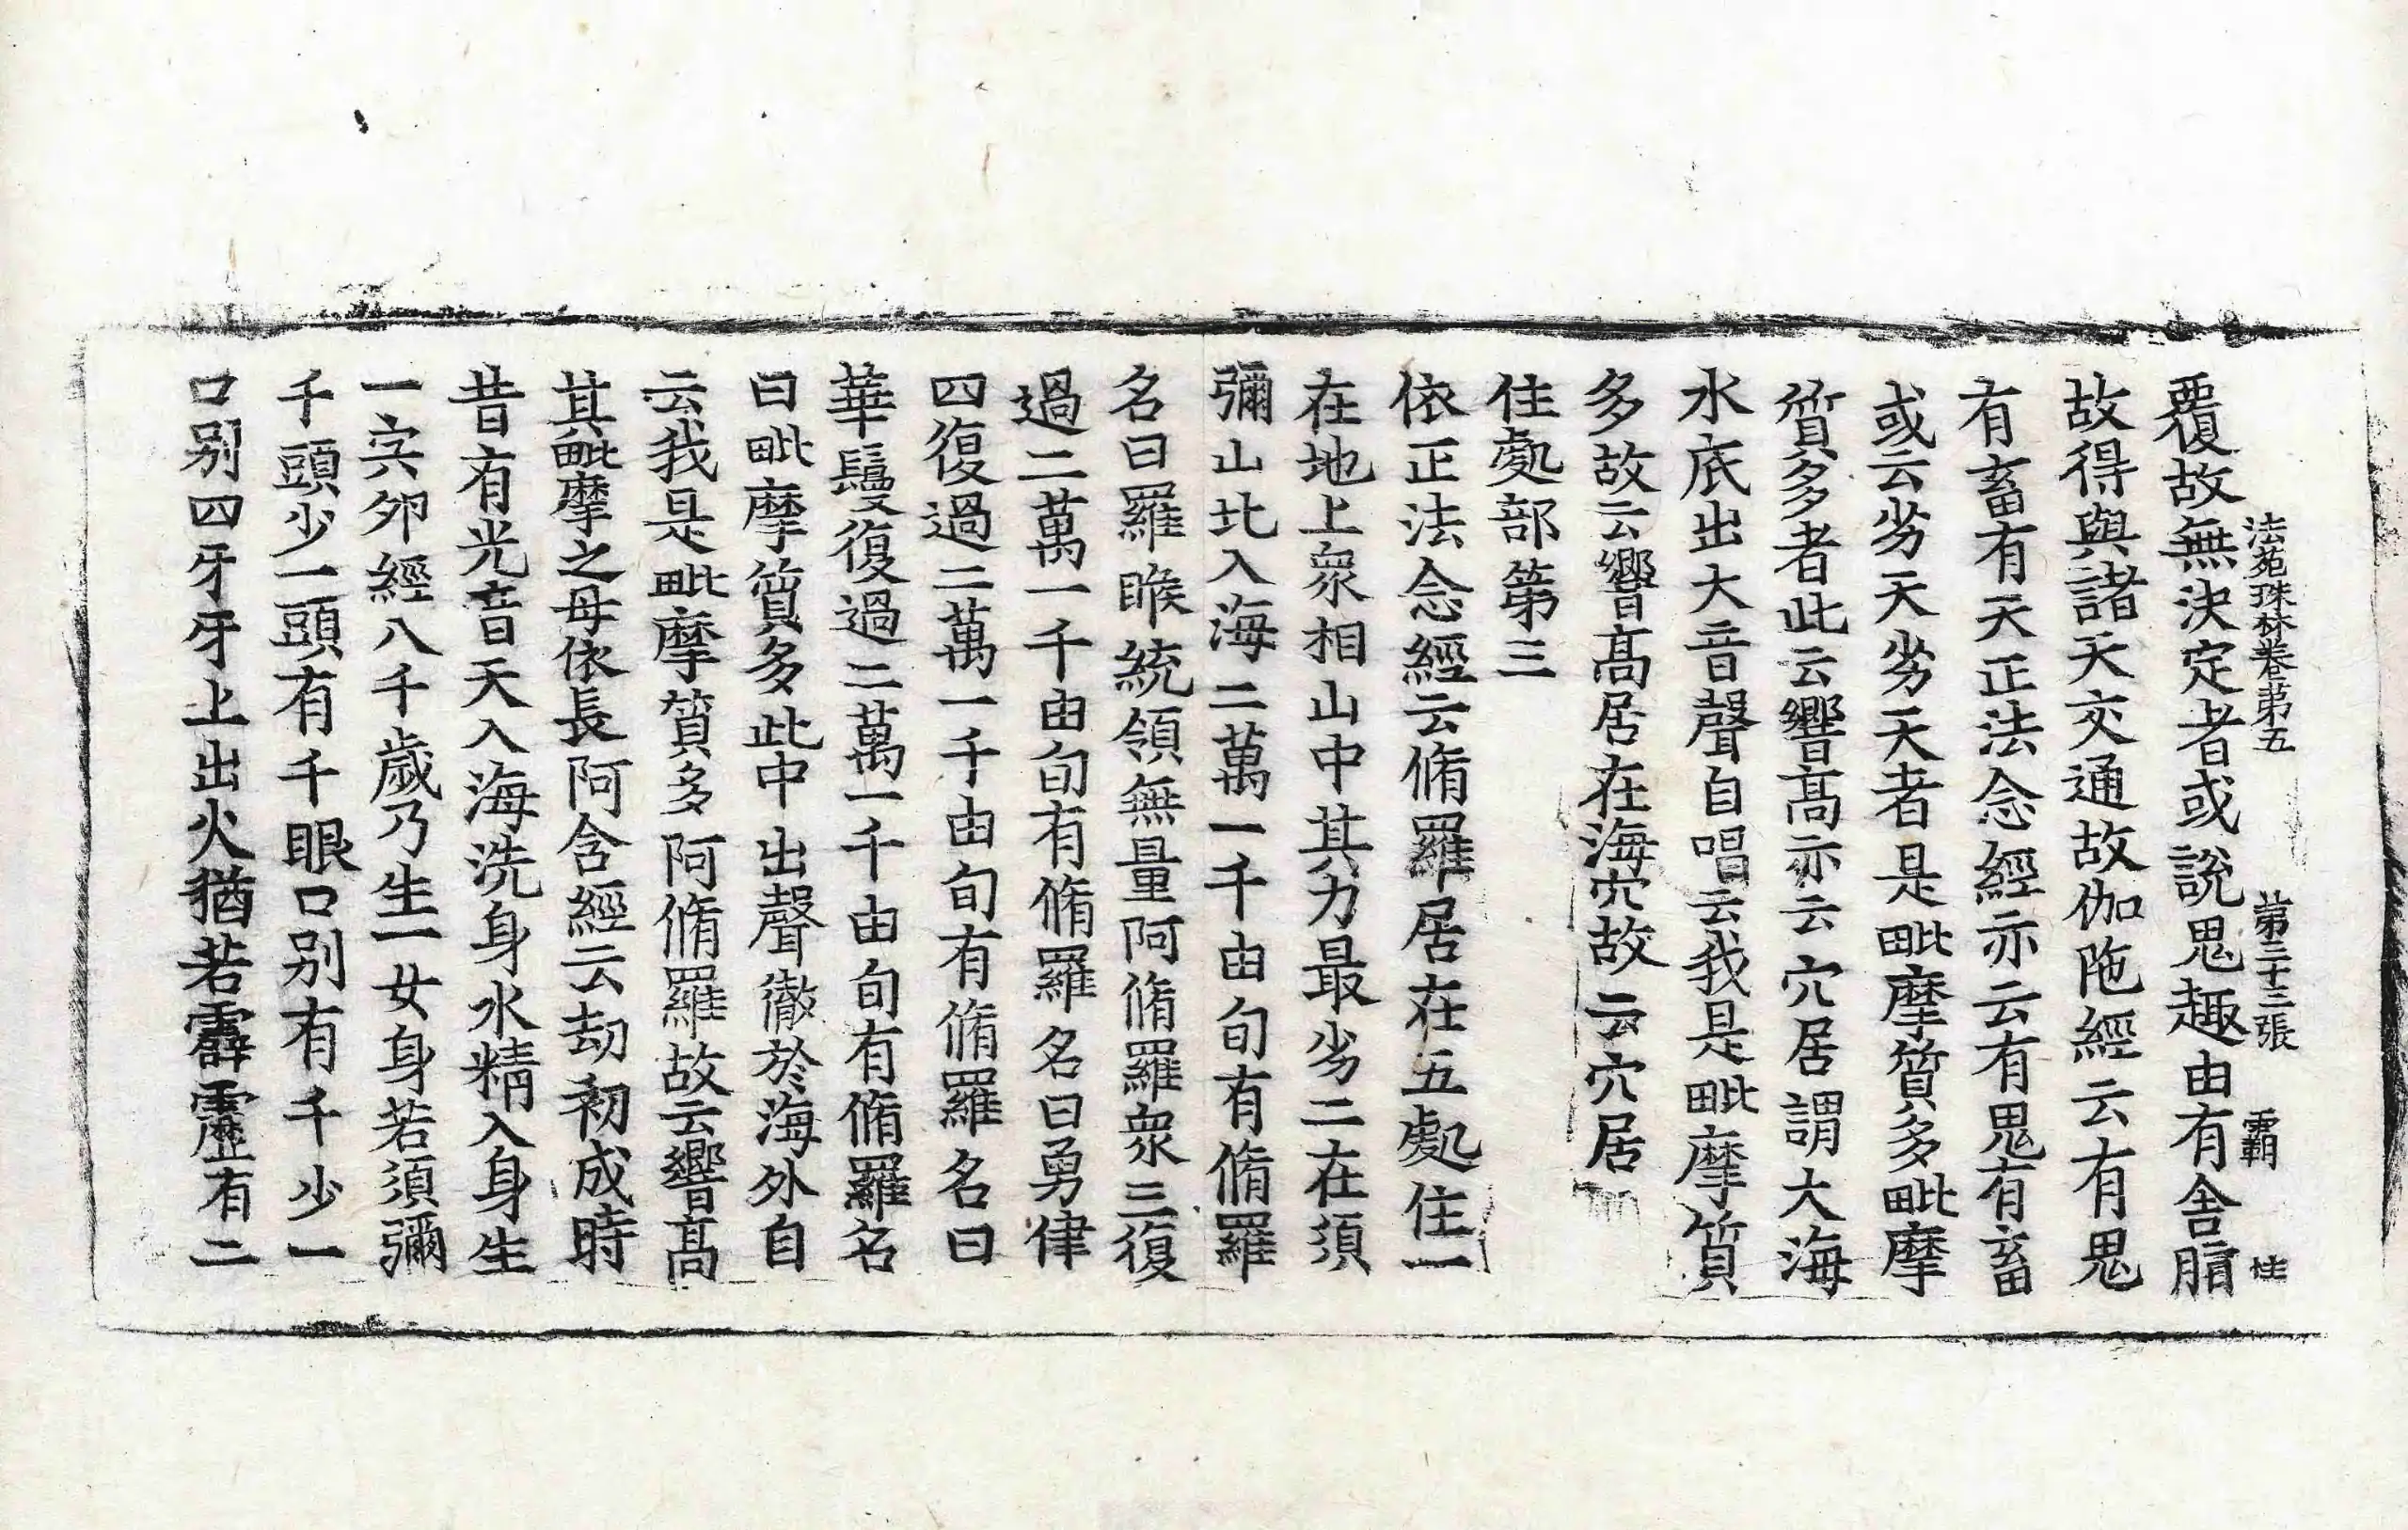 法苑珠林卷第五 第三十二張 霸
覆故無決定者或說鬼趣由有舍脂
故得與諸天交通故伽陁經云有鬼
有畜有天正法念經亦云有鬼有畜
或云劣天劣天者是毗摩質多毗摩
質多者此云響髙亦云穴居謂大海
水底出大音聲自唱云我是毗摩質
多故云響髙居在海穴故云穴居
住處部第三
依正法念經云脩羅居在五處住一
在地上衆相山中其力最劣二在須
彌山北入海二萬一千由旬有脩羅
名曰羅睺統領無量阿脩羅衆三復
過二萬一千由旬有脩羅名曰勇律
四復過二萬一千由旬有脩羅名曰
華鬘復過二萬一千由旬有脩羅名
曰毗摩質多此中出聲徹於海外自
云我是毗摩質多阿脩羅故云響髙
其毗摩之母依長阿含經云劫初成時
昔有光音天入海洗身水精入身生
一肉卵經八千歲乃生一女身若須彌
千頭少一頭有千眼口別有千少一
口別四牙牙上出火猶若霹靂有二